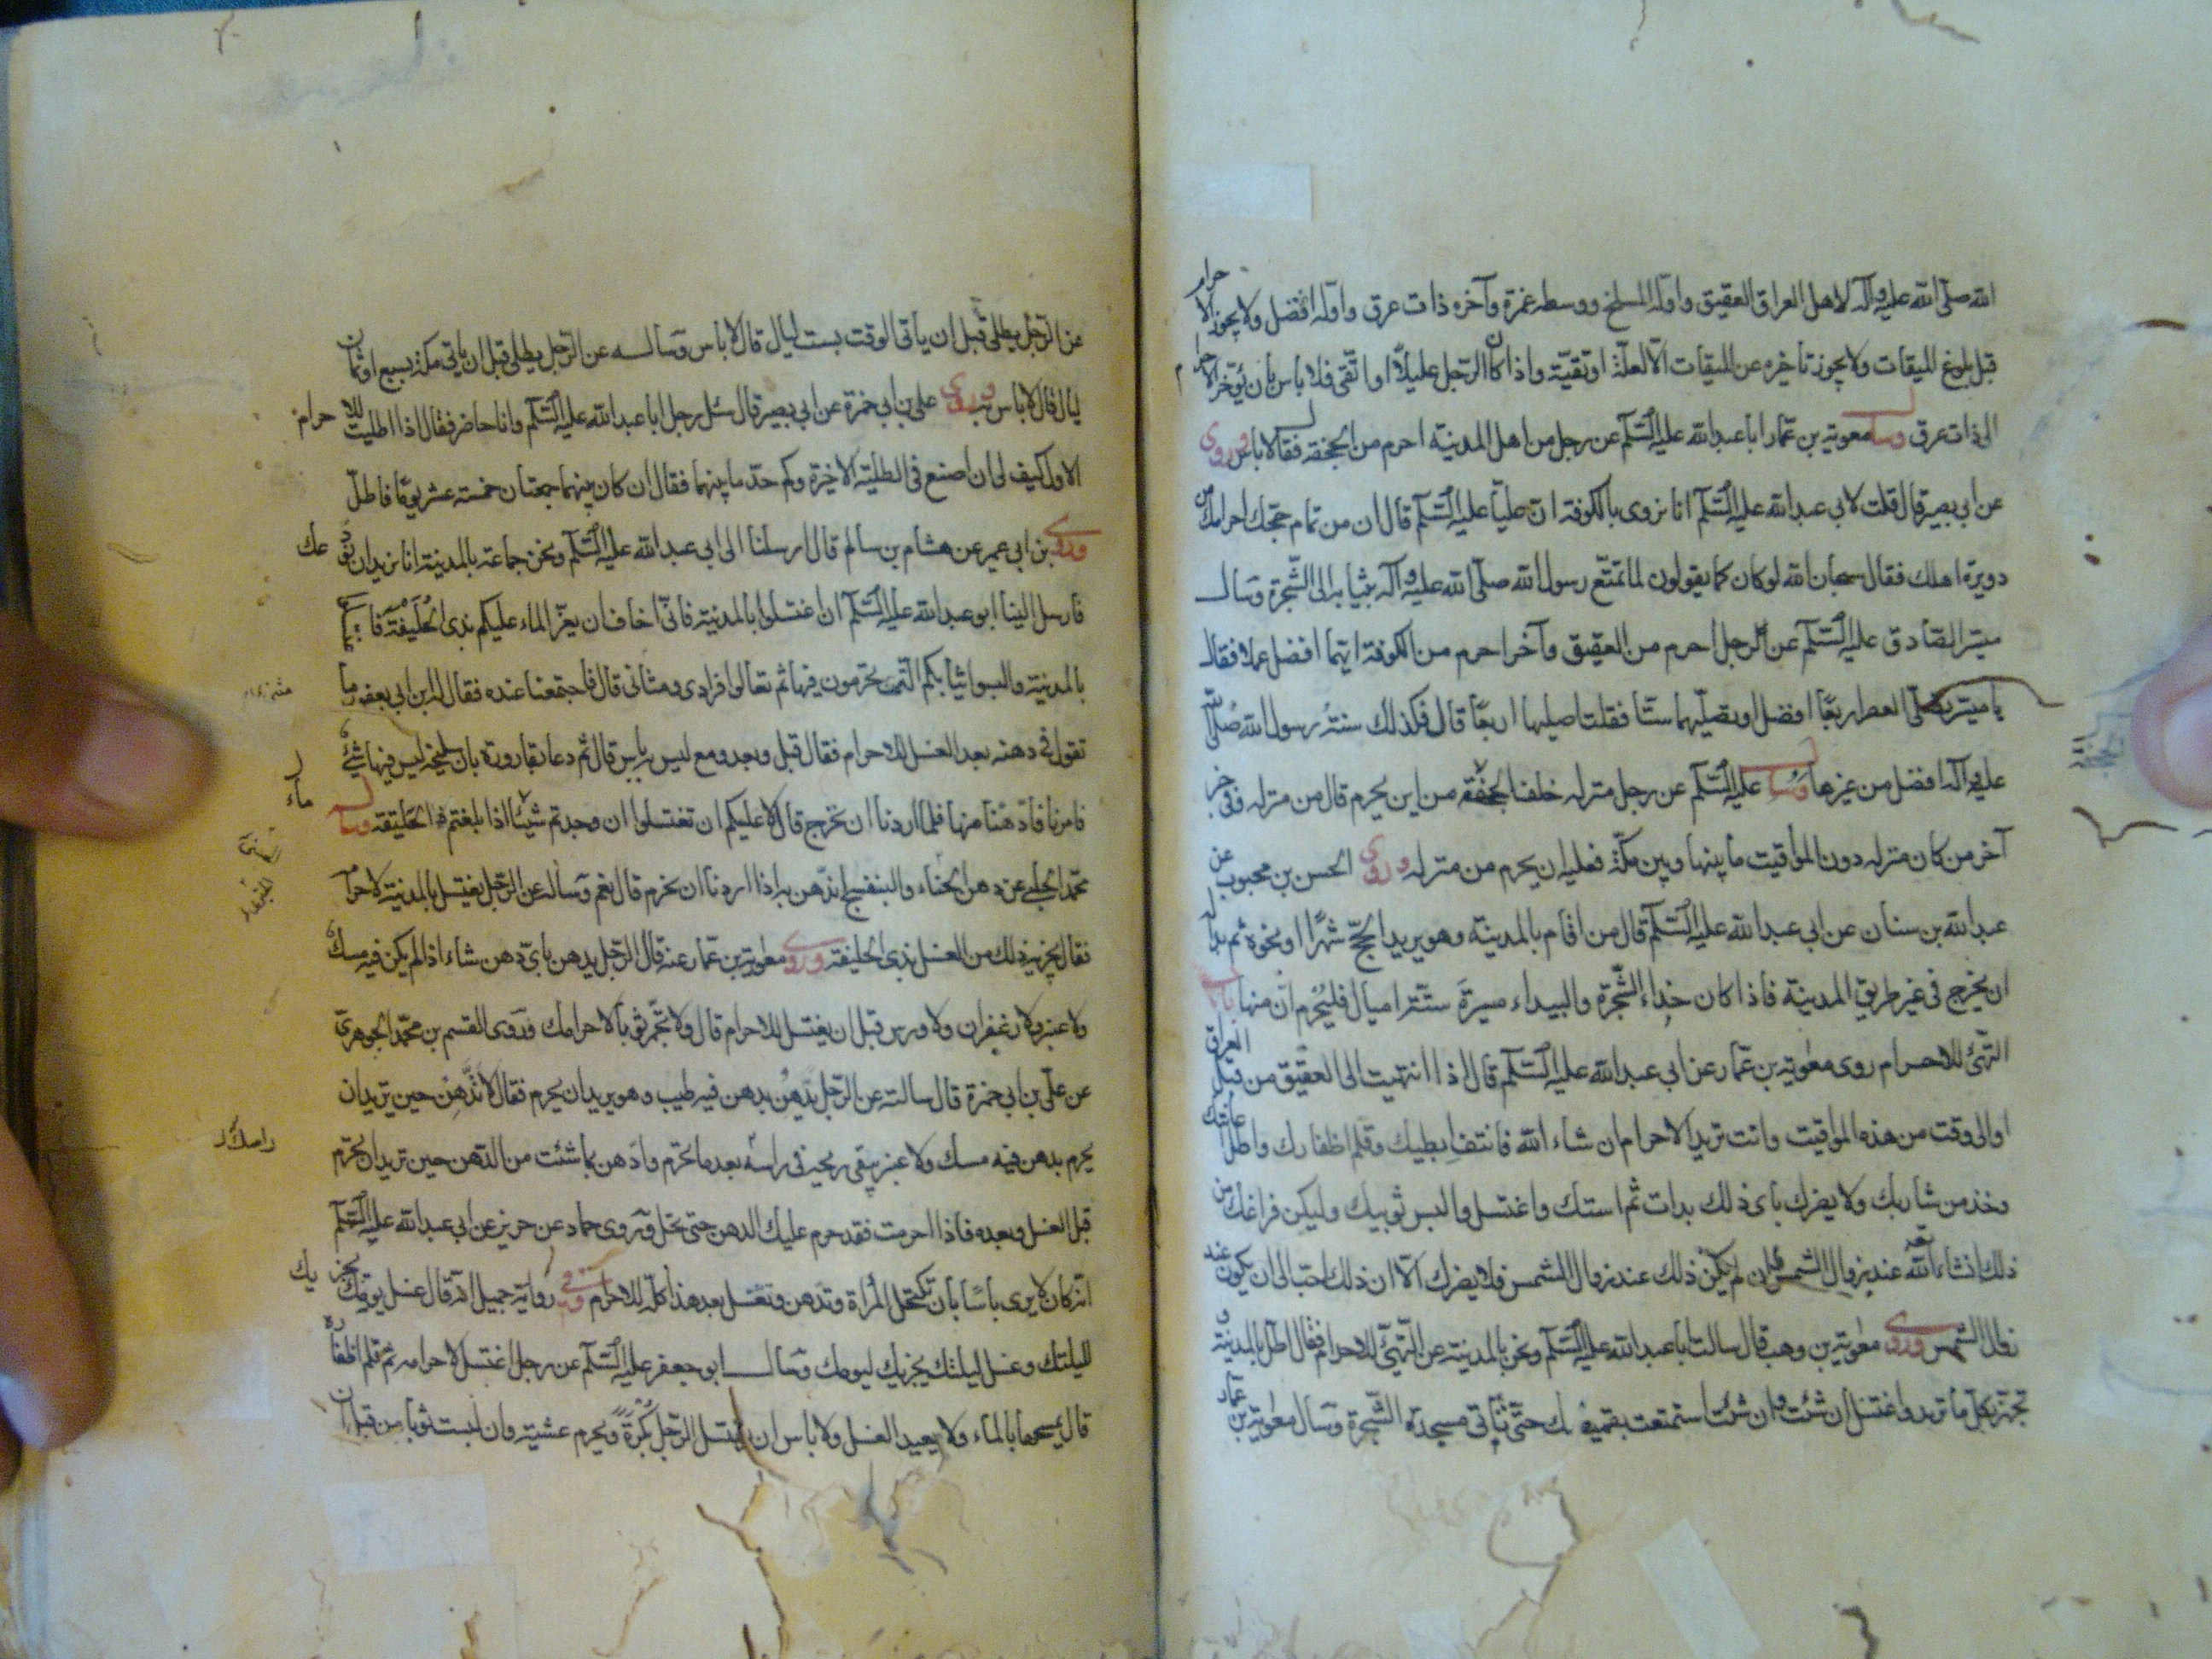 الله صلّى الله عليه وآله لاهل العراق العقيق واوله المسلخ ووسطه غمرة وآخره ذات عرق واوّله افضل ولا يجوز الاحرام
قبل بلوغ الميقات ولا يجوز تاخيره عن الميقات الّا لعلّة او تقيّة واذا كان الرّجل عليلًا او اتّقى فلا باس بان يؤخّر الاحرام
الى ذات عرق وسال معوية بن عمّار ابا عبدالله عليه السّلم عن رجل من اهل المدينة احرم من الجحفة فقال لا باس وروى
عن ابي بصير قال قلت لابي عبدالله عليه السّلم انا نروى بالكوفة انّ عليّا عليه السّلم قال ان من تمام حجّك احرامك من
دويرة اهلك فقال سبحان الله لو كان كما يقولون لما تمتّع رسول الله صلّى الله عليه وآله بثيابه الى الشّجرة وسال
ميسر الصّادق عليه السّلم عن رجل احرم من العقيق وآخر احرم من الكوفة ايّهما افضل عملا فقال
يا ميسر تصلّى العصر اربعًا افضل او تصلّيها ستّا فقلت اصليها اربعًا قال فكذلك سنة رسول الله صلّى الله
عليه وآله افضل من غيرها وسال عليه السّلم عن رجل منزله خلف الجحفة من اين يحرم قال من منزله وفى خبر
آخر من كان منزله دون المواقيت ما بينها وبين مكّة فعليه ان يحرم من منزله وروى الحسن بن محبوب عن
عبدالله بن سنان عن ابي عبدالله عليه السّلم قال من اقام بالمدينة وهو يريد الحجّ شهرًا او نحوه ثم بدا له
ان يخرج فى غير طريق المدينة فاذا كان حذاء الشّجرة والبيداء مسيرة ستّة اميال فليحرم منها باب
التهيّئ للاحرام روى معوية بن عمّار عن ابي عبدالله عليه السّلم قال اذا انتهيت الى العقيق من قبل العراق
او الى وقت من هذه المواقيت وانت تريد الاحرام ان شاء الله فانتف ابطيك وقلم اظفارك واطل عانتك
وخذ من شاربك ولا يضرك باى ذلك بدات ثم استك واغتسل والبس ثوبيك وليكن فراغك من
ذلك انشاء الله عند زوال الشمس فان لم يكن ذلك عند زوال الشمس فلا يضرك الّا ان ذلك احبّ الى ان يكون عند
زوال الشّمس وروى معوية بن وهب قال سالت ابا عبدالله عليه السّلم ونحن بالمدينة عن التّهيّئ للاحرام فقال اطل بالمدينة و
تجهّز بكل ما تريد واغتسل ان شئت وان شئت استمتعت بقميصك حتّى تأتى مسجد الشّجرة وسال معوية بن عمّار
عن الرّجل يطلى قبل ان يأتى الوقت بست ليال قال لا باس وسأله عن الرّجل يطلى قبل ان ياتى مكّة بسبع او ثمان
ليال قال لا باس به وروى على بن ابي حمزة عن ابي بصير قال سئل رجل ابا عبدالله عليه السّلم وانا حاضر فقال اذا اطليت للاحرام
الاول كيف لى ان اصنع فى الطلية الاخيرة وكم حدّ ما بينهما فقال ان كان بينهما جمعتان خمسة عشر يومًا فاطل
وروى بن ابي عمير عن هشام بن سالم قال ارسلنا الى ابي عبدالله عليه السّلم ونحن جماعة بالمدينة انا نريد ان نودّعك
فارسل الينا ابو عبدالله عليه السّلم ان اغتسلوا بالمدينة فانّى اخاف ان يعزّ الماء عليكم بذى الحليفة فاغتسلوا
بالمدينة والبسوا ثيابكم الّتى تحرمون فيها ثم تعالوا فرادى ومثانى قال فاجتمعنا عنده فقال له ابن ابي يعفور ما
تقول فى دهنة بعد الغسل للاحرام فقال قبل وبعد ومع ليس به باس قال ثم دعا بقارورة بان سليخة ليس فيها شئ
فامرنا فادّهنّا منها فلما اردنا ان نخرج قال لا عليكم ان تغتسلوا ان وجدتم ماء اذا بلغتم ذا الحليفة وسال
محمّد الحلبى عن دهن الحناء والبنفسج اندّهن به اذا اردنا ان نحرم قال نعم وساله عن الرّجل يغتسل بالمدينة لاحرامه
فقال يجزيه ذلك من الغسل بذى الحليفة وروى معوية بن عمّار عنه قال الرّجل يدهن باىّ دهن شاء اذا لم يكن فيه مسك
ولا عنبر ولا زعفران ولا ورس قبل ان يغتسل للاحرام قال ولا تجمّر ثوبًا لاحرامك وروى القسم بن محمّد الجوهرىّ
عن علّى بن ابي حمزة قال سالته عن الرّجل يدّهن بدهن فيه طيب وهو يريد ان يحرم فقال لا تدّهن حين تريد ان
يحرم بدهن فيه مسك ولا عنبر يبقى ريحه فى راسك بعد ما تحرم وادّهن بما شئت من الدّهن حين تريد ان تحرم
قبل الغسل وبعده فاذا احرمت فقد حرم عليك الدهن حتى تحل وروى حماد عن حريز عن ابي عبدالله عليه السّلم
انّه كان لا يرى بأسًا بأن تكتحل المرأة وتدّهن وتغتسل بعد هذا كلّه للاحرام وفى رواية جميل انّه قال غسل يومك يجزيك
لليلتك وغسل ليلتك يجزيك ليومك وسال ابو جعفر عليه السّلم عن رجل اغتسل لاحرامه ثم قلم اظفاره
قال يمسحها بالماء ولا يعيد الغسل ولا باس ان يغتسل الرّجل بكرة ويحرم عشية وان لبست ثوبا من قبل ان